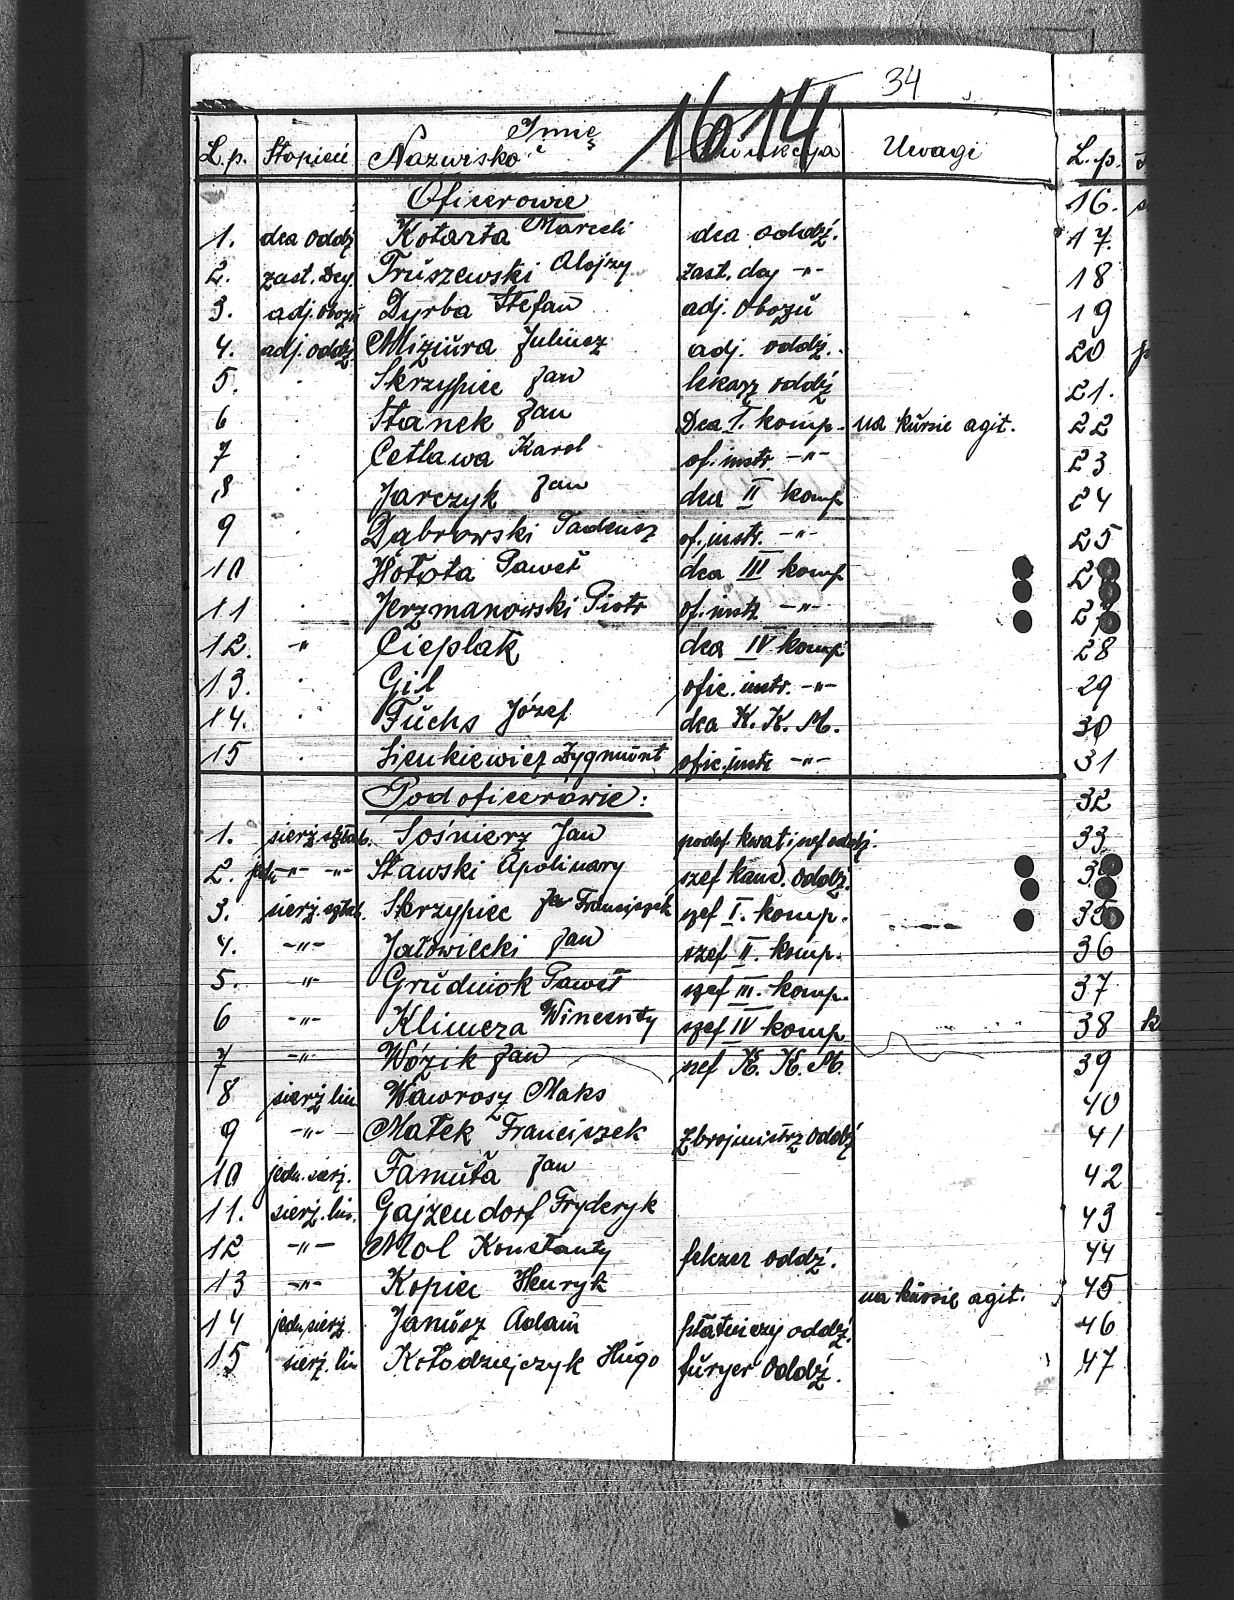 34
1614
L.p. Stopień Nazwisko i Imię Funkcya Uwagi
Oficerowie
1. dca oddz. Kotarta Marceli dca oddz.
2. zast. Dcy. Truszewski Alojzy zast. dcy -"-
3. adj. obozu Dyrba Stefan adj. obozu
4. adj. oddz. Miziura Juliusz adj. oddz.
5. Skrzypiec Jan lekarz oddz.
6 Stanek Jan Dca I. komp. na kursie agit.
7 Cetlawa Karol of. instr. -"-
8 Jarczyk Jan dca II komp
9 Dąbrowski Tadeusz of. instr. -"-
10 Hołota Paweł dca III komp
11 Jerzmanowski Piotr of. instr. -"-
12. -"- Cieplak dca IV komp
13. Gil ofic. instr. -"-
14. Fuchs Józef dca K. K. M.
15 Sienkiewicz Zygmunt ofic. instr. -"-
Podoficerowie:
1. sierż. sztab. Sośnierz Jan podof. kwat i szef oddz.
2. -"- -"- Stawski Apolinary szef kanc. oddz.
3. sierż. sztab. Skrzypiec Franciszek szef I. komp.
4. -"- Jałowiecki Jan szef II. komp.
5. -"- Grudniok Paweł szef III. komp.
6 -"- Klimcza Wincenty szef IV komp
7 -"- Wózik Jan szef K. K. M.
8 sierż. lin Wawrosz Maks
9 -"- Małek Franciszek Zbrojmistrz oddz
10 jedn. sierż. Famuła Jan
11. sierż. lin. Gajzendorf Fryderyk
12 -"- Mol Konstanty felczer oddz.
13 -"- Kopiec Henryk na kursie agit.
14 jedn. sierż Janusz Adam płatniczy oddz.
15 sierż. lin Kołodziejczyk Hugo furyer Oddz.
L. p.
16.
17.
18
19
20
21.
22
23
24
25
28
29
30
31
32
33
35
36
37
38 k
39
40
41
42
43
44
45
46
47